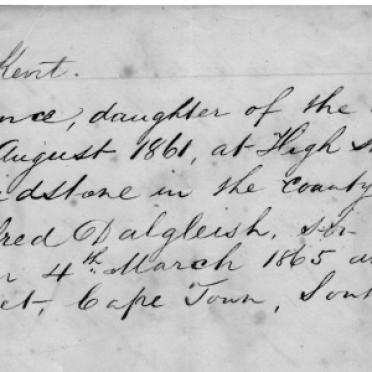 Kent.
nce, daughter of the
August 1861, at High S
idstone in the county
red Dalgleish, son
n 4th March 1865 a
et, Cape Town, Sout